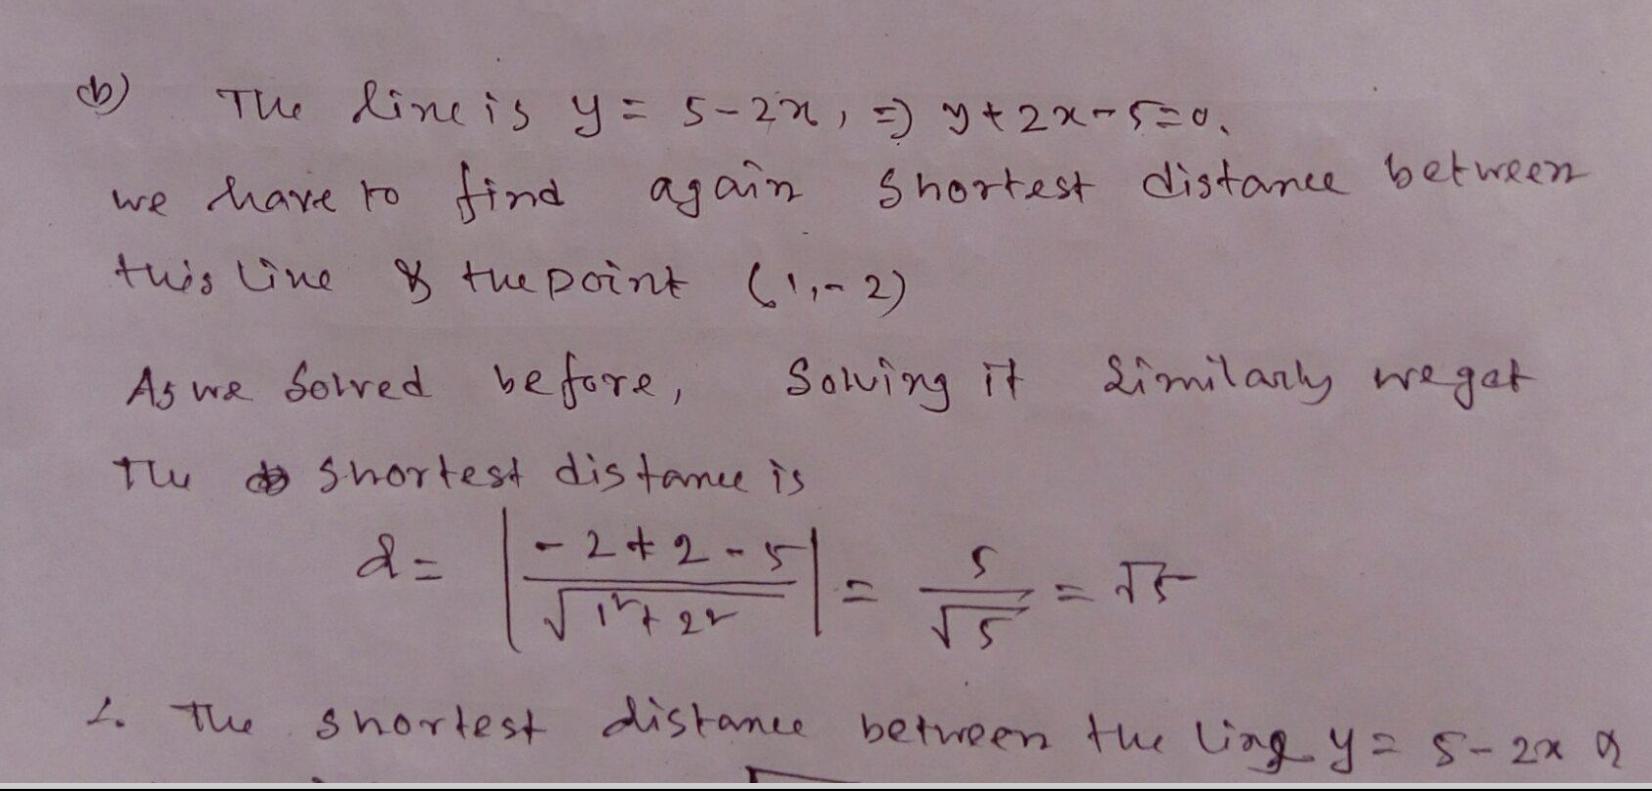 b) The line is y = 5-2x, ⇒ y+2x-5=0.
we have to find again shortest distance between
this line & the point (1,-2)
As we solved before, Solving it Similarly we get
The shortest distance is
d = |(-2+2-5)/√(1²+2²)| = 5/√5 = √5
The shortest distance between the line y = 5-2x &